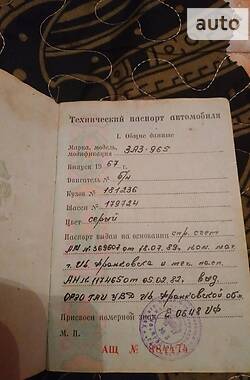 auto
Технический паспорт автомобиля
I. Общие данные
Марка, модель, ЗАЗ-965
модификация
Выпуск 1967 г.
Двигатель № б/н
Кузов № 181236
Шасси № 179724
Цвет серый
Паспорт выдан на основании спр. счет
№ 369604 от 18.07.89,
г. Ив Франковска и тех. пасп.
117465 от 05.02.82, выд
ГАИ УВД Ив Франковской обл
Присвоен номерной знак 0648 ИФ
М. П.
АЩ №